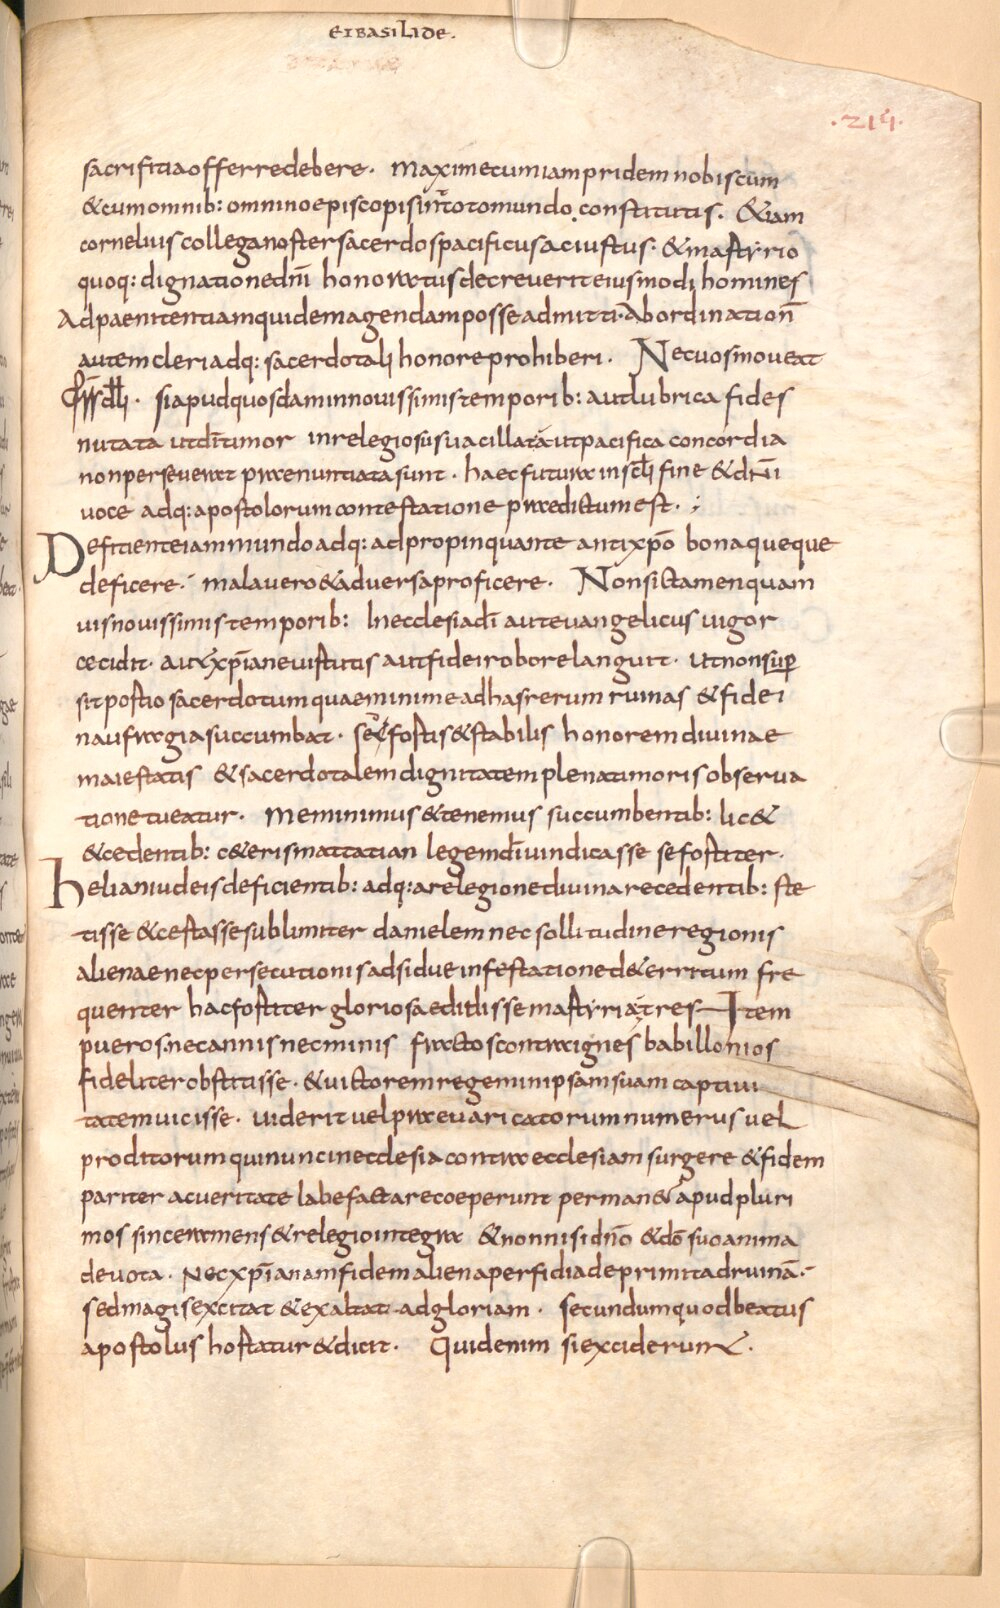 ET BASILIDE.
.214.
sacrifitia offerre debere. Maxime cum iampridem nobiscum
& cum omnib: omnino episcopis in toto mundo constitutis. &iam
cornelius collega noster sacerdos pacificus ac iustus. & martyrio
quoq: dignatione dnī honoratus decreverit eiusmodi homines
Ad paenitentiam quidem agendam posse admitti. Ab ordination̄
autem cleri adq: sacerdotali honore prohiberi. Nec vos moveat
si apud quosdam in novissimis temporib: aut lubrica fides
nutata ut dī timor inrelegiosus vacillat aut pacifica concordia
non perseverat praenuntiata sunt. haec futura in sclī fine & dnī
voce adq: apostolorum contestatione praedictum est.
Defitiente iam mundo adq: adpropinquante antixpō bona queque
deficere. mala vero & adversa proficere. Non sic tamen quam
vis novissimis temporib: In ecclesia dī aut evangelicus vigor
cecidit. aut xpīane virtutis aut fidei robore languit. Ut non sup
sit portio sacerdotum quae minime ad has rerum ruinas & fidei
naufragia succumbat. sed fortis & stabilis honorem divinae
maiestatis & sacerdotalem dignitatem plena timoris observa
tione tueatur. Meminimus & tenemus succumbentib: lic&
& cedentib: c&eris mattatian legem dī vindicasse se fortiter.
heliam iudeis deficientib: adq: a relegione divina recedentib: ste
tisse & certasse sublimiter danielem nec sollitudine regionis
alienae nec persecutionis adsidue infestatione d&erritum fre
quenter hac fortiter gloriosa edidisse martyria tres Item
pueros. nec annis nec minis fractos contra ignes babillonios
fideliter obstitisse. & victorem regem in ipsam suam captivi
tatem vicisse. viderit vel praevaricatorum numerus vel
proditorum qui nunc in ecclesia contra ecclesiam surgere & fidem
pariter ac veritate labefactare coeperunt perman& apud pluri
mos sincera mens & relegio integra & non nisi dnō & dō suo anima
devota. Nec xpīanam fidem aliena perfidia deprimit ad ruinā.
sed magis excitat & exaltat ad gloriam. secundum quod beatus
apostolus hortatur & dicit. Quid enim si exciderunt.